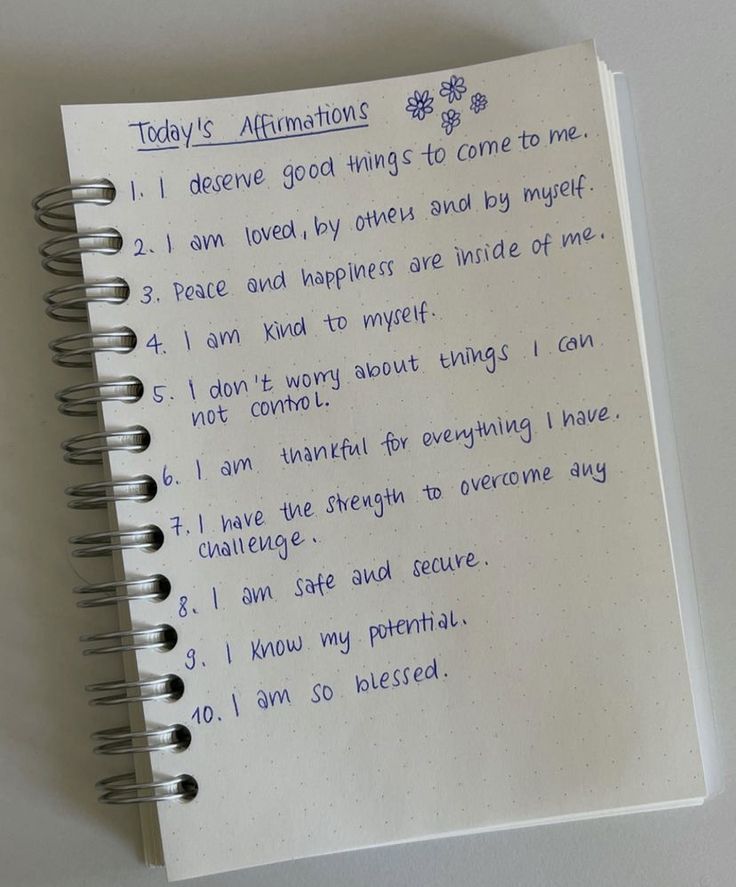 Today's Affirmations
1. I deserve good things to come to me.
2. I am loved, by others and by myself.
3. Peace and happiness are inside of me.
4. I am kind to myself.
5. I don't worry about things I can
not control.
6. I am thankful for everything I have.
7. I have the strength to overcome any
challenge.
8. I am safe and secure.
9. I know my potential.
10. I am so blessed.